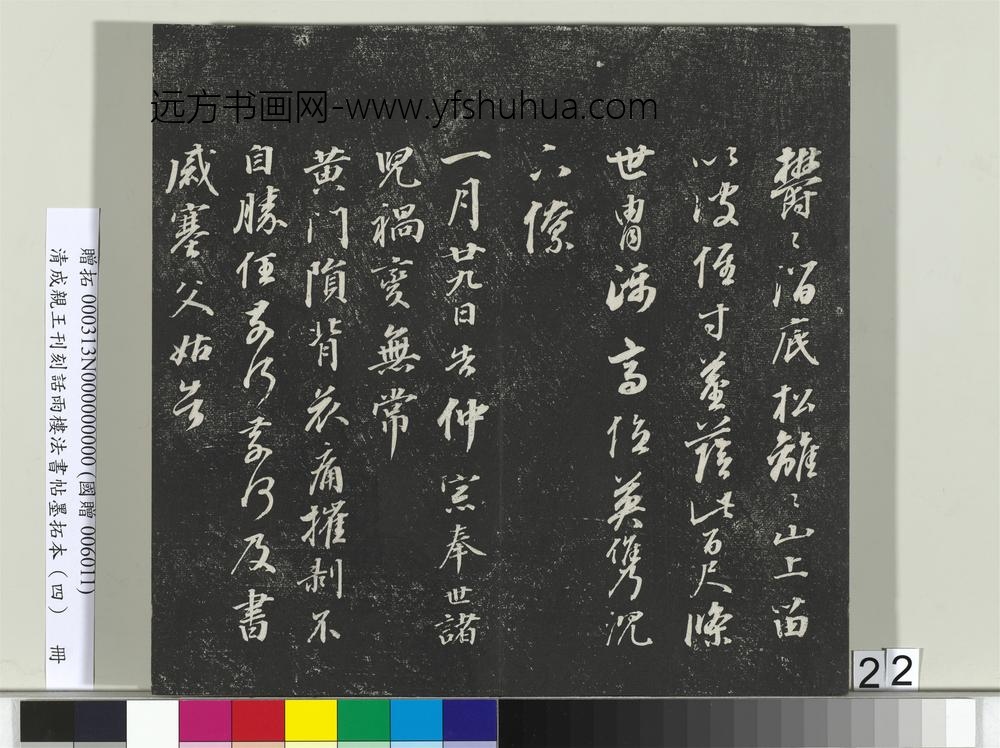 远方书画网-www.yfshuhua.com
鬱〻澗底松離〻山上苗
以彼徑寸莖蔭此百尺條
世胄躡高位英儁沉
下僚
一月廿九日告仲宗奉世諸
兒禍變無常
黄门隕背哀痛摧剥不
自勝任奈何奈何及書
感塞父姑告
贈拓 000313N000000000 (國贈 006011)
清成親王刊刻話雨樓法書帖墨拓本（四） 冊
22